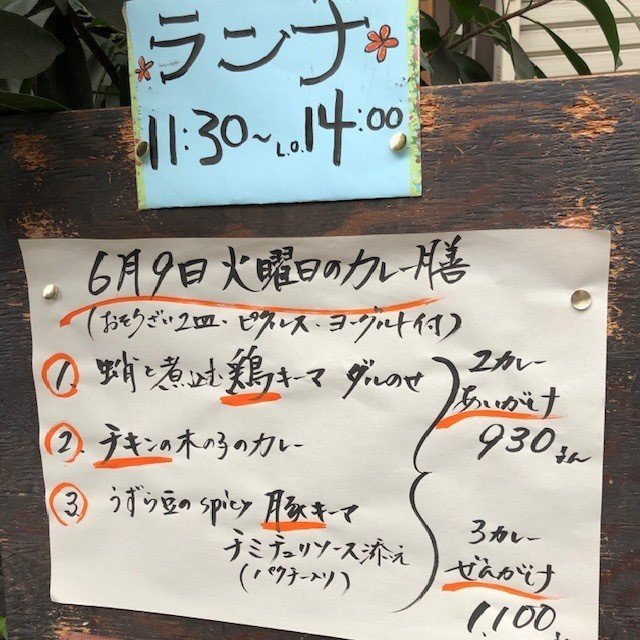 ランチ
11:30~L.O.14:00
6月9日火曜日のカレー膳
(おそうざい2皿・ピクルス・ヨーグルト付)
1. 蛸と煮込む鶏キーマ ダルのせ
2. チキンの木の子のカレー
3. うずら豆のspicy豚キーマ
チミチュリソース添え
(パクチー入り)
2カレー
あいがけ
930えん
3カレー
ぜんがけ
1,100